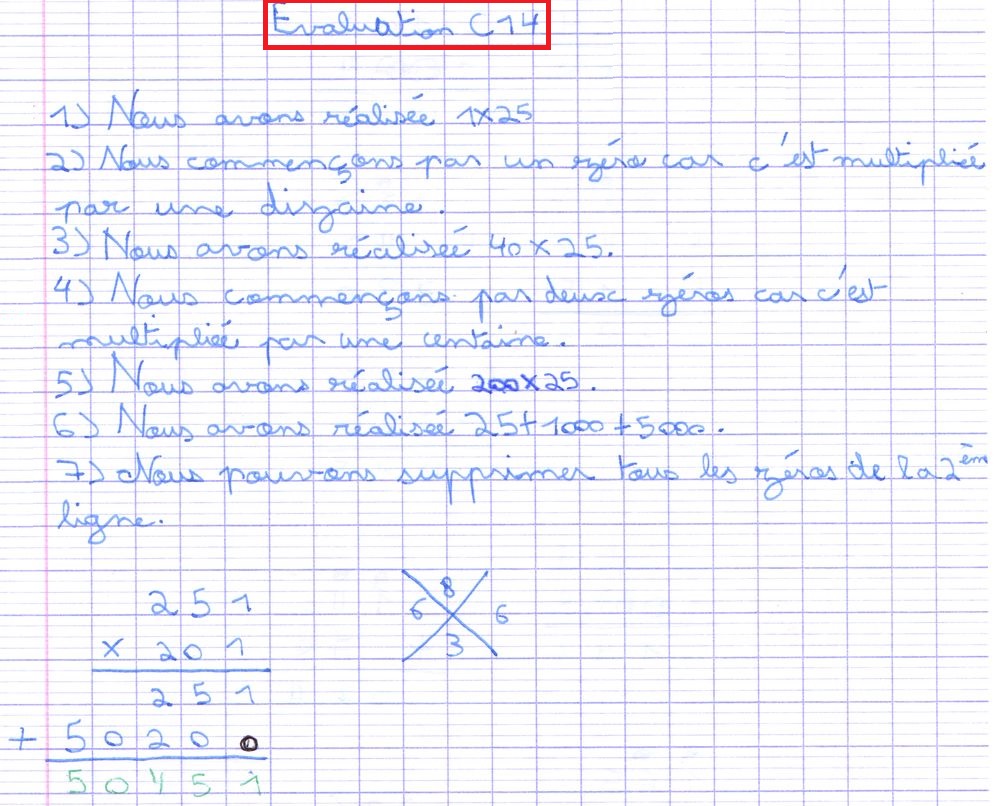 Evaluation C14
1) Nous avons réalisée 1x25
2) Nous commençons par un zéro car c'est multipliée
par une dizaine.
3) Nous avons réalisée 40 x 25.
4) Nous commençons par deux zéros car c'est
multipliée par une centaine.
5) Nous avons réalisée 200x25.
6) Nous avons réalisée 25+1000+5000.
7) Nous pouvons supprimer tous les zéros de la 2ème
ligne.
2 5 1
x 2 0 1
2 5 1
+ 5 0 2 0 0
5 0 4 5 1
8
6 6
3